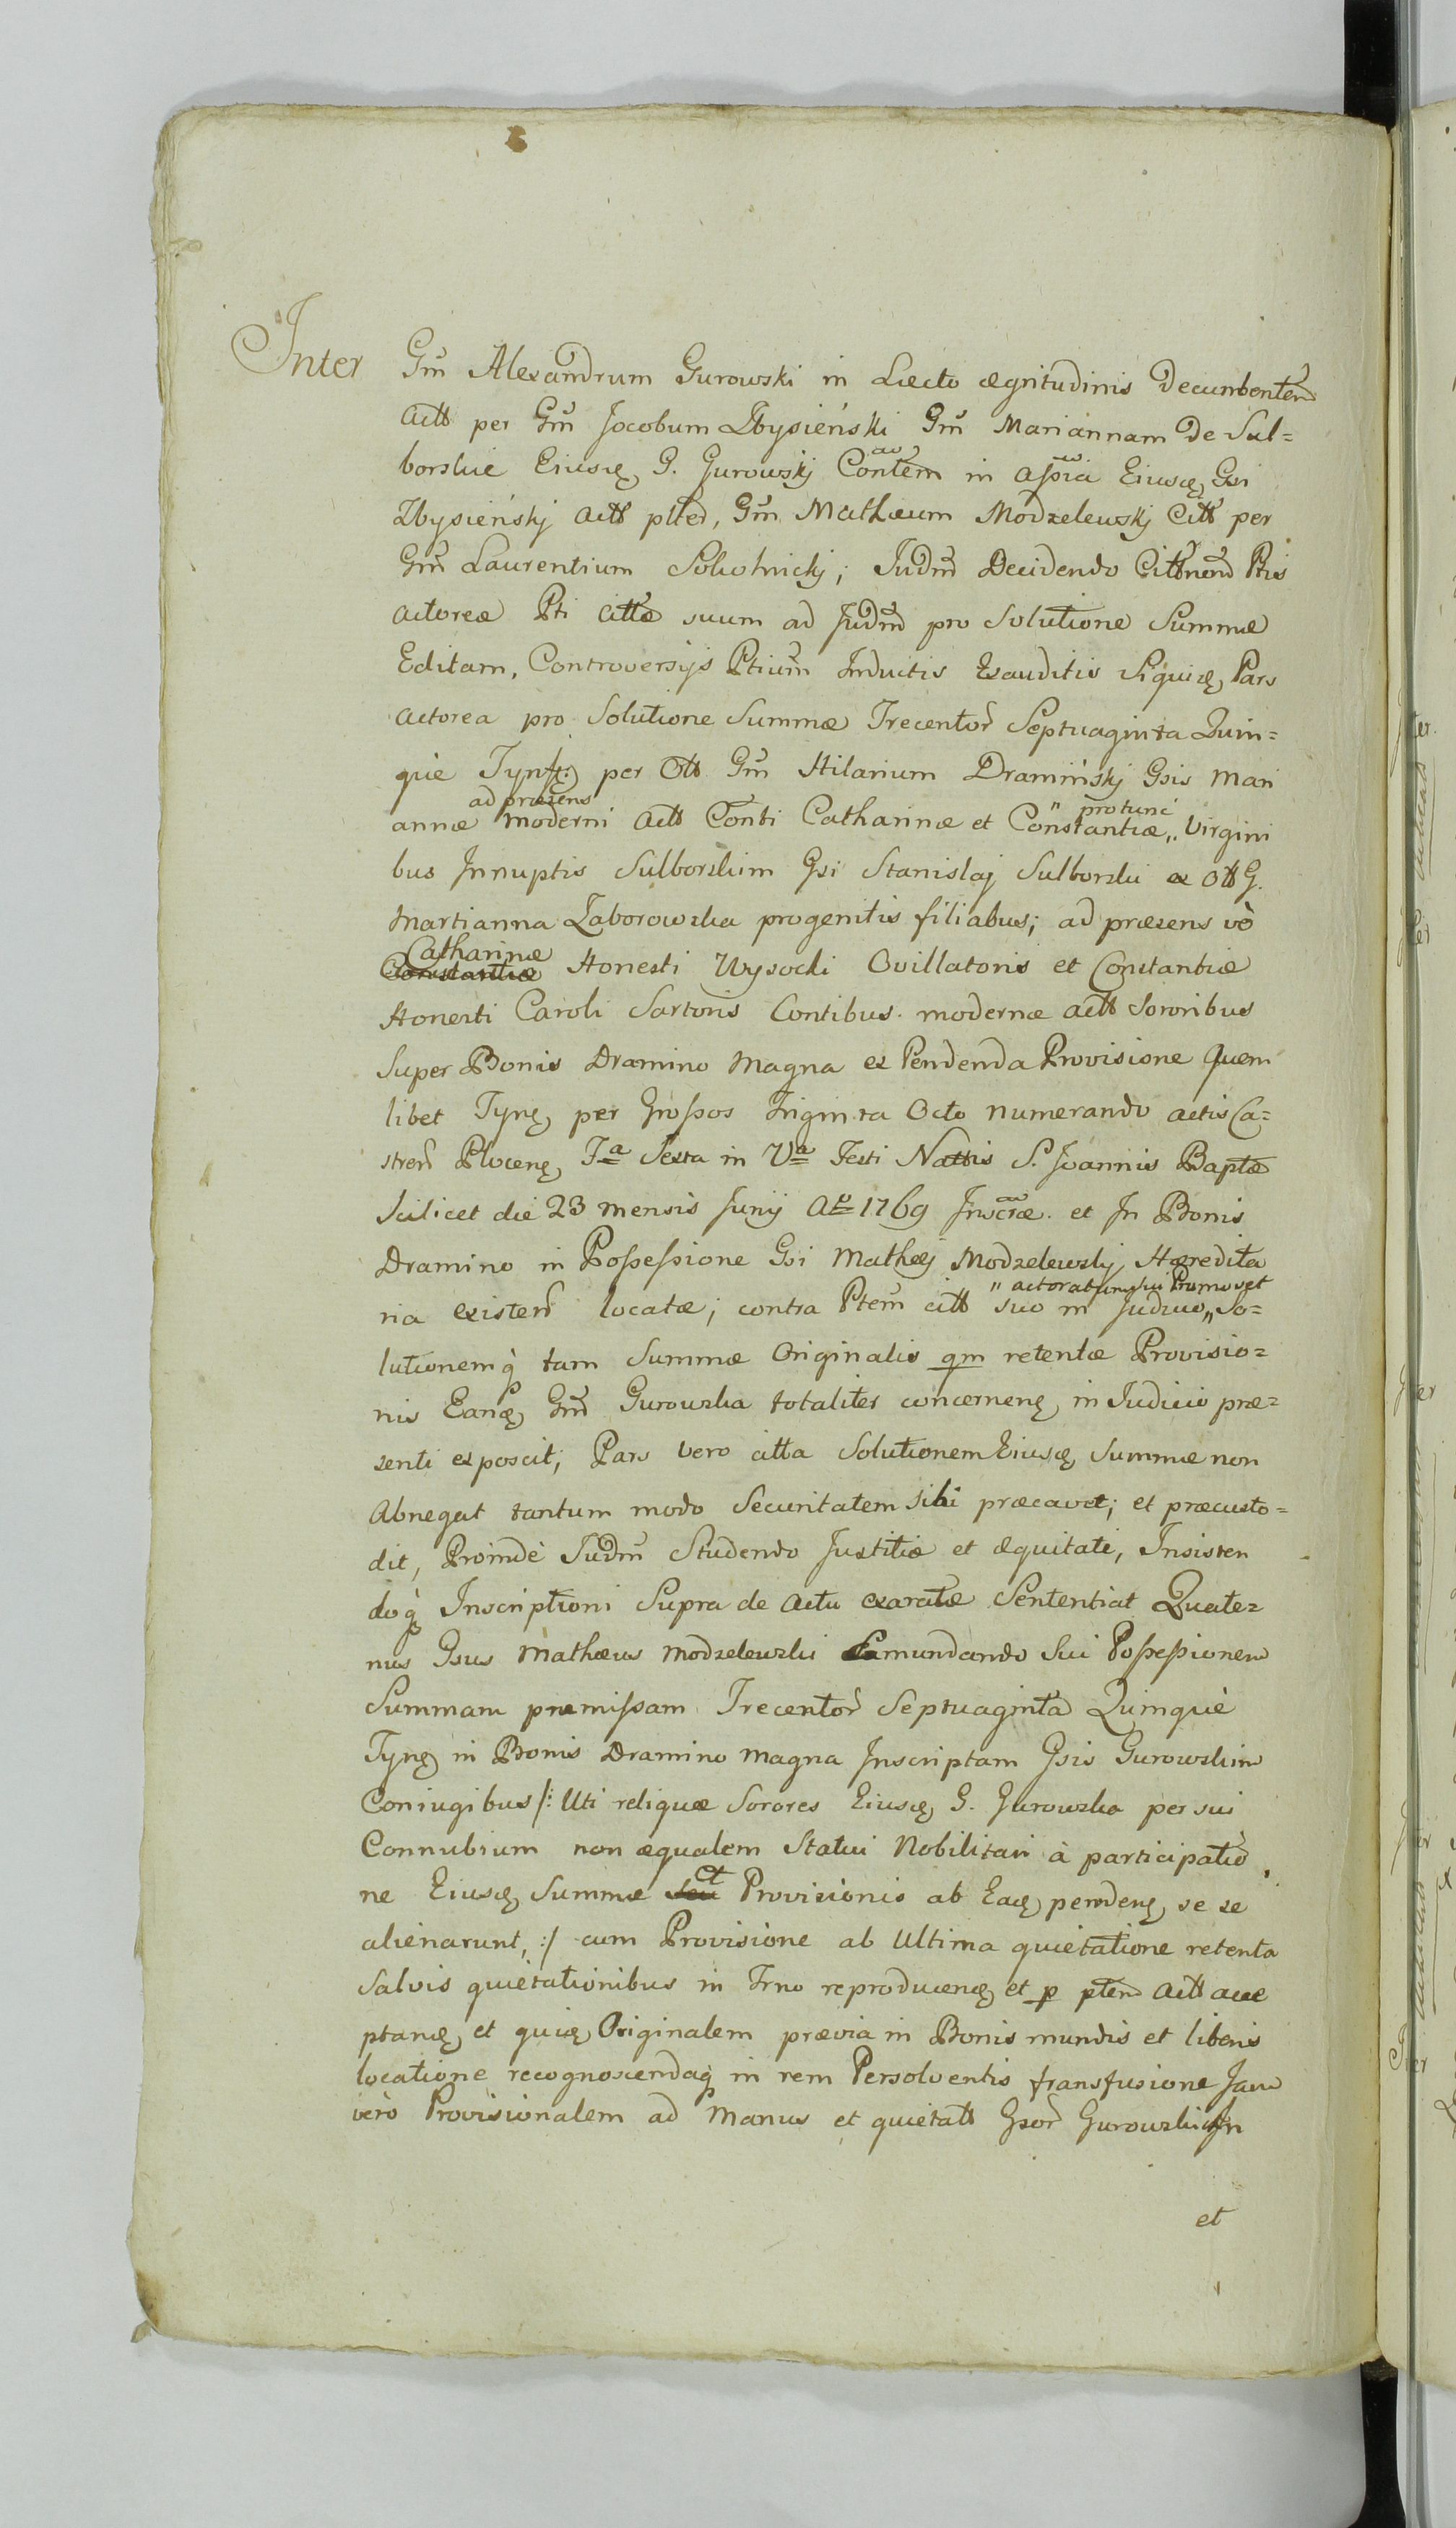 Inter Gm̃ Alexandrum Gurowski in Lecto ægritudinis Decumbentem̃
actt per Gm̃ Jocobum Zbysieński Gm̃ Mariannam De Sul=
borskie Eiusꝗ G. Gurowskj Contem in aßia Eiusꝗ Gsi
Zbysieńskj actt ptted, Gm̃ Mathæum Modzelewskj Citt per
Gm̃ Laurentium Sokolnickj; Judm̃ Decidendo Cittnem̃ Ptis
actoreæ Pti cittæ suum ad Judm̃ pro Solutione Summæ
Editam, Controversijs Ptium̃ Inductis Exauditis Siquiꝗ Pars
actorea pro Solutione Summæ Trecentor̃ Septuaginta Quin=
què Tynf: per Ott Gm̃ Hilarium Dramińskj Gsis Mari
annæ ad præsens moderni actt Conti Catharinæ et Constantiæ „ protunc „ Virgini
bus Innuptis Sulborskim Gsi Stanislaj Sulborski ex Ott G.
Martianna Zaborowska progenitis filiabus; ad præsens vò
Constantiæ Catharinæ Honesti Wysocki Ovillatoris et Constantiæ
Honesti Caroli Sartoris Contibus modernæ actt Sororibus
Super Bonis Dramino Magna ex Pendenda Provisione Quem
libet Tynꝗ per Großos Triginta Octo numerando actis Ca=
stren̄ Plocenꝗ Fa Sexta in Va Festi Nattis S. Joannis Baptæ
Scilicet die 23 mensis Junij Ao 1769 Inscræ. et In Bonis
Dramino in Poßeßione Gsi Mathej Modzelewskj Hæredita
ria existen̄ locatæ; contra Ptem̃ citt suo in Judicio „ actoratum sui Promovet „ So=
lutionemq̀ tam Summæ Originalis qm retentæ Provisio=
nis Eanꝗ Gm̃ Gurowska totaliter concernenꝗ in Judicio præ=
senti exposcit; Pars vero citta Solutionem Eiusꝗ Summæ non
Abnegat tantum modo Securitatem sibi præcavet; et præcusto=
dit, Proindè Judm̃ Studendo Justitiæ et Æquitati, Insisten
doq̀ Inscriptioni Supra de Actu exaratæ Sententiat Quate=
nus Gsus Mathæus Modzelewski Emundando Sui Poßeßionem
Summam præmißam Trecentor̃ Septuaginta Quinquè
Tynꝗ in Bonis Dramino Magna Inscriptam Gsis Gurowskim
Coniugibus /: Uti reliquæ Sorores Eiusꝗ G. Gurowska per sui
Connubium non æqualem Statui Nobilitari à participatio
ne Eiusꝗ Summæ seu et Provisionis ab Eaꝗ pendenꝗ se se
alienarunt, :/ cum Provisione ab Ultima quietatione retenta
Salvis quietationibus in Trno reproducenꝗ et p pten̄ Actt acce
ptanꝗ et quiꝗ Originalem prævia in Bonis mundis et liberis
locatione recognoscendaq̀ in rem Persolventis transfusione Jam
verò Provisionalem ad Manus et quietatt Gsor̃ Gurowskich In
et